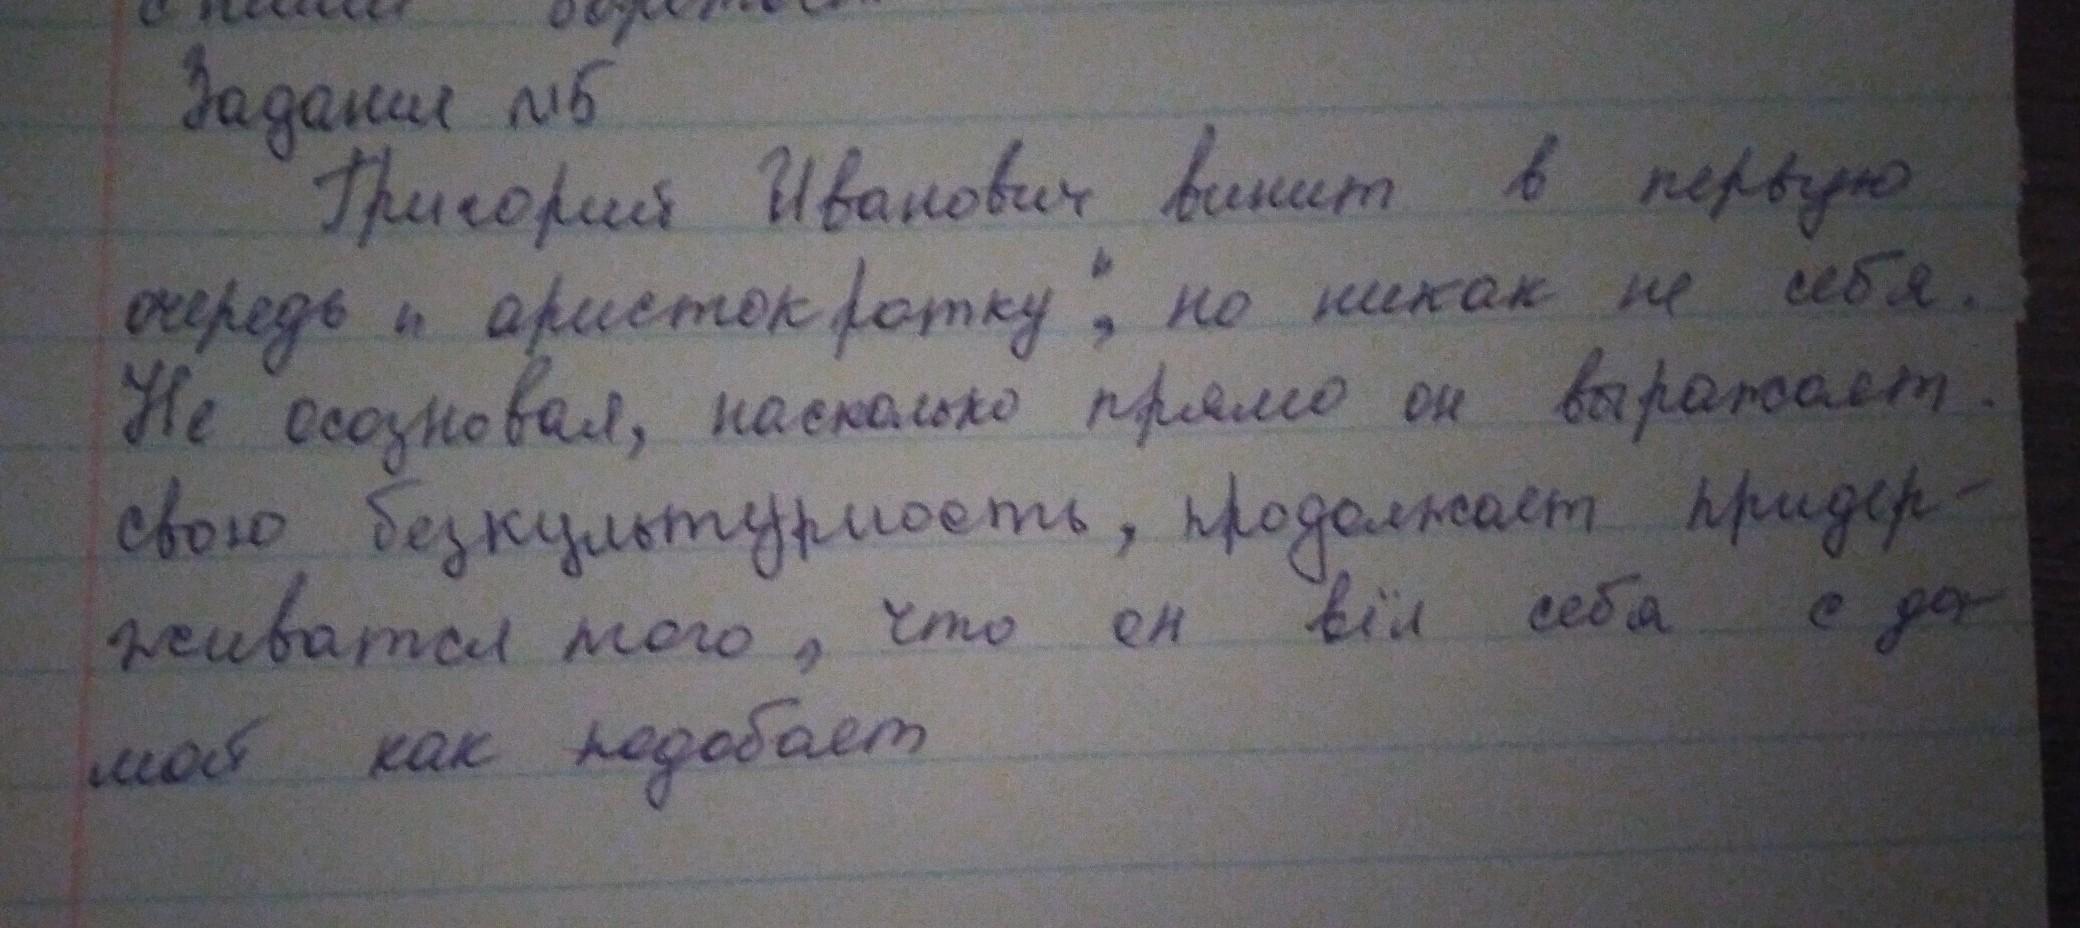 Задания №5
Григорий Иванович винит в первую
очередь "аристократку", но никак не себя.
Не осозновая, насколько прямо он выражает
свою безкультурность, продолжает придер-
живатся того, что он вёл себя с да-
мой как подобает